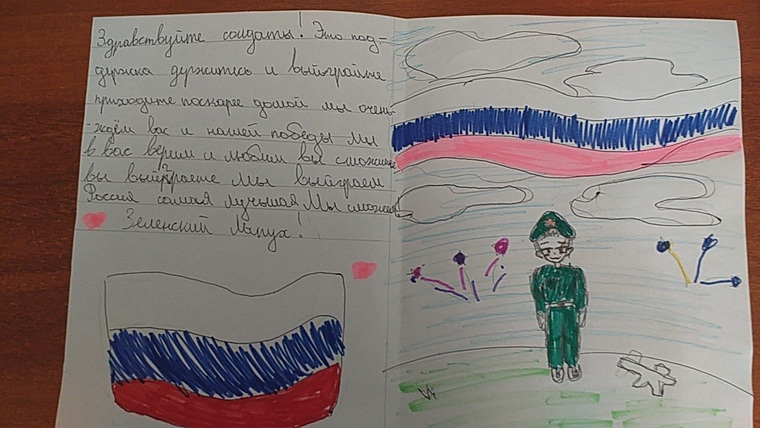 Здравствуйте солдаты! Это под-
держка держитесь и выйграйте
приходите поскарее домой мы очень
ждём вас и нашей победы Мы
в вас верим и любим вы сможите
вы выйграете Мы выйграем
Россия самая лучшая Мы сможем
Зеленский Лапух!